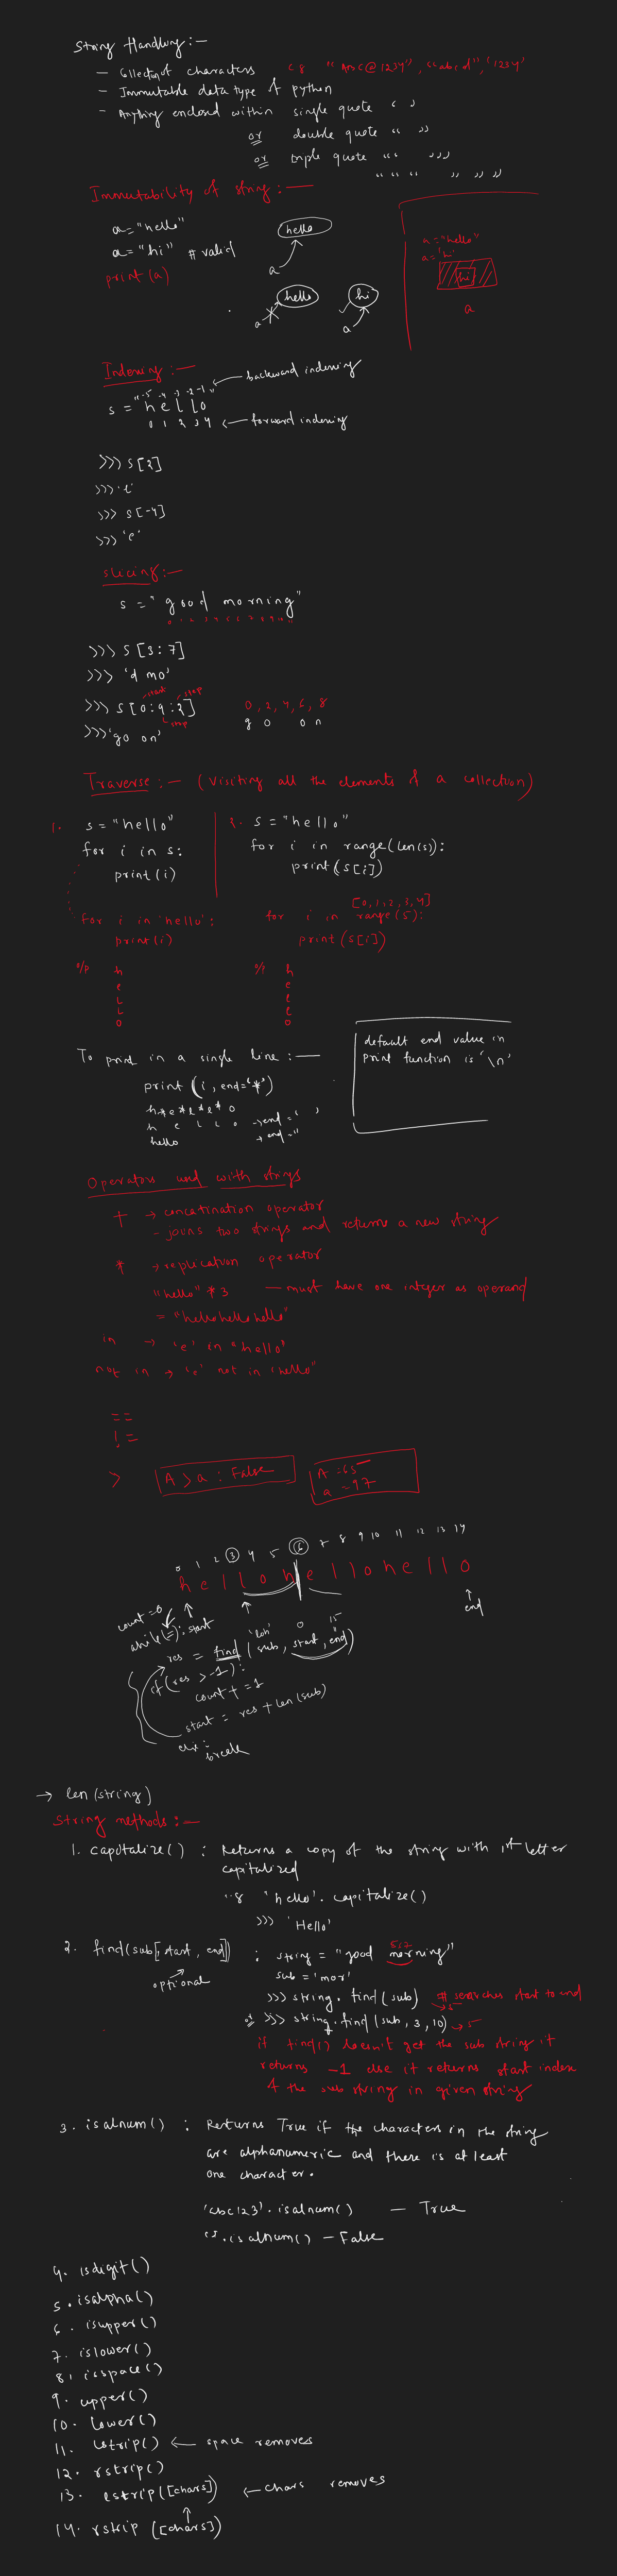 String Handling :-
- Collection of characters eg "Abc@1234", "abcd", '1234'
- Immutable data type of python
- Anything enclosed within single quote ' '
or double quote " "
or triple quote ''' '''
""" """
Immutability of string :-
a = "hello"
a = "hi" # valid
print (a)
hello
a
hello
a
hi
a
a = "hello"
a = 'hi'
hi
a
Indexing :-
backward indexing
-5 -4 -3 -2 -1
s = "hello"
0 1 2 3 4 ← forward indexing
>>> s[2]
>>> 'l'
>>> s[-4]
>>> 'e'
slicing :-
s = "good morning"
0 1 2 3 4 5 6 7 8 9 10 11
>>> s[3:7]
>>> 'd mo'
start stop
>>> s[0:9:2] 0, 2, 4, 6, 8
step g o o n
>>> 'go on'
Traverse :- (visiting all the elements of a collection)
1. s = "hello"
for i in s:
print(i)
for i in 'hello':
print(i)
o/p h
e
L
L
o
2. s = "hello"
for i in range(len(s)):
print(s[i])
[0,1,2,3,4]
for i in range(5):
print(s[i])
o/p h
e
l
l
o
To print in a single line :-
print (i, end='*')
h*e*l*l*o
h e l l o → end = ' '
hello → end = ''
default end value in
print function is '\n'
Operators used with strings
+ → concatination operator
- joins two strings and returns a new string
* → replication operator
"hello" * 3 - must have one integer as operand
= "hellohellohello"
in → 'e' in "hello"
not in → 'e' not in "hello"
==
!=
> A > a : False
A = 65
a = 97
0 1 2 3 4 5 6 7 8 9 10 11 12 13 14
hellohellohello
count = 0
while(): start
end
'loh' 0 15
res = find (sub, start, end)
if (res > -1):
count += 1
start = res + len(sub)
else:
break
→ len (string)
String methods :-
1. capitalize() : Returns a copy of the string with 1st letter
capitalized
eg 'hello'. capitalize()
>>> 'Hello'
2. find(sub[, start, end]) : string = "good morning"
optional
5:7
sub = 'mor'
>>> string. find (sub) # searches start to end
→ 5
or >>> string. find (sub, 3, 10) → 5
if find() doesn't get the sub string it
returns -1 else it returns start index
of the sub string in given string
3. isalnum() : Returns True if the characters in the string
are alphanumeric and there is at least
one character.
'abc123'. isalnum() - True
''. isalnum() - False
4. isdigit()
5. isalpha()
6. isupper()
7. islower()
8. isspace()
9. upper()
10. lower()
11. lstrip() ← space removes
12. rstrip()
13. lstrip([chars]) ← chars removes
14. rstrip ([chars])